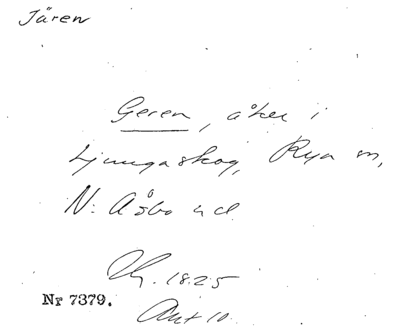 Jären
Geren, åker i
Ljungaskog, Rya sn,
N. Åsbo hd.
1825
Nr 7379.
Akt 10.